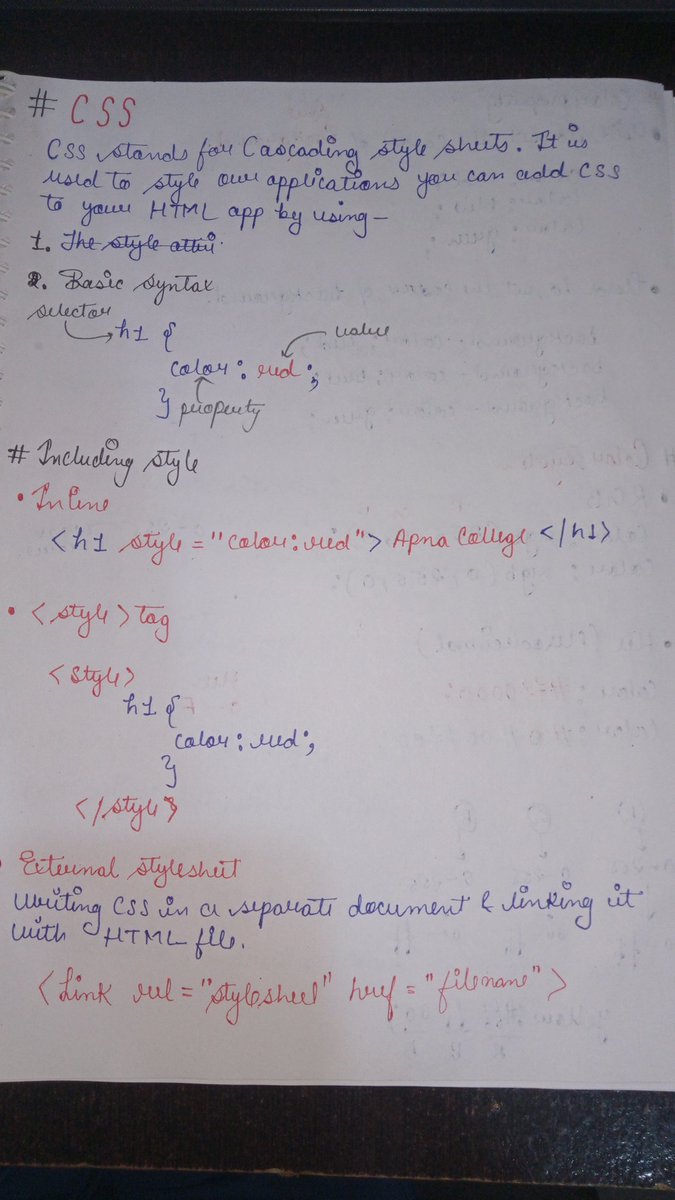 # CSS
CSS stands for Cascading style sheets. It is
used to style our applications you can add CSS
to your HTML app by using –
1. The style attri
2. Basic syntax
selector
h1 {
value
color : red ;
} property
# Including style
• Inline
<h1 style = "color: red"> Apna College </h1>
• <style> tag
<style>
h1 {
color : red;
}
</style>
• External stylesheet
Writing CSS in a separate document & linking it
with HTML file.
<Link rel = "stylesheet" href = "filename">